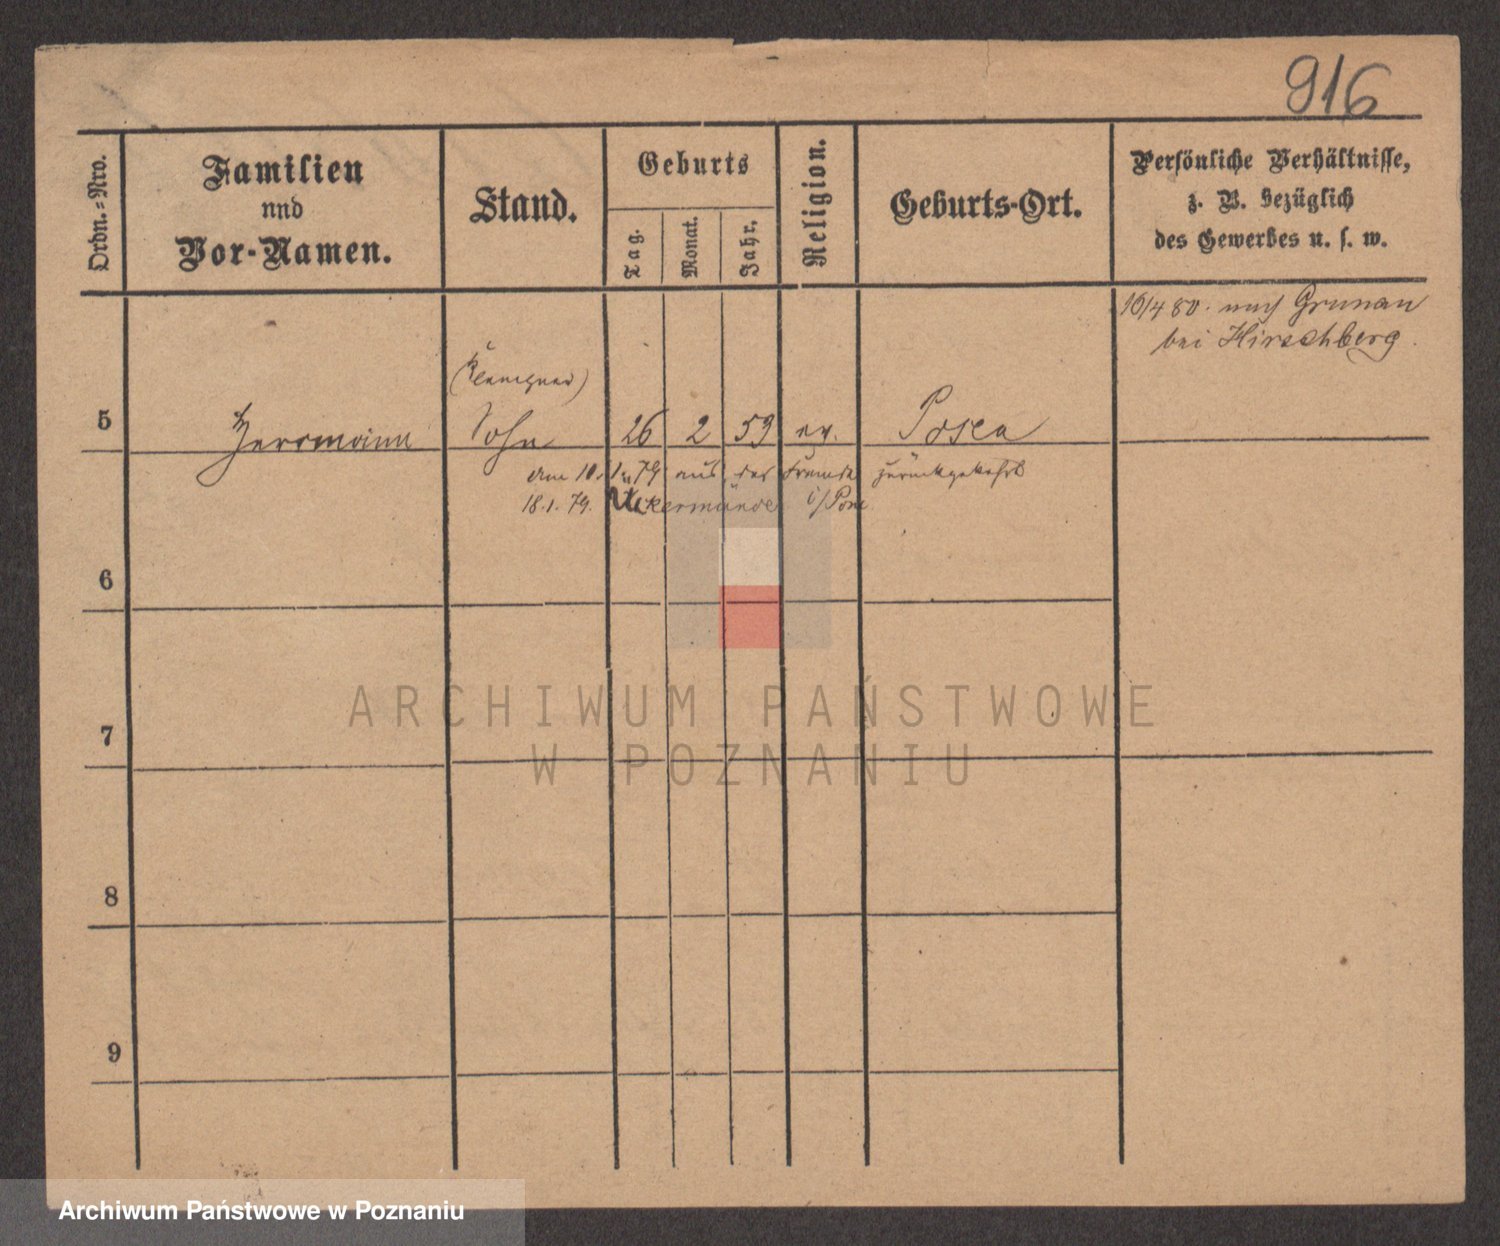 916
Ordn.-Nro.
Familien
und
Vor-Namen.
Stand.
Geburts
Tag.
Monat.
Jahr.
Religion.
Geburts-Ort.
Persönliche Verhältnisse,
z. B. bezüglich
des Gewerbes u. s. w.
16/4 80. nach Grunau
bei Hirschberg.
(Klempner)
5 Herrmann Sohn 26 2 59 ev. Posen
am 10. 1. 79 aus der Fremde zurückgekehrt
18. 1. 79. Uckermünde i/Pom
6
7
8
9
ARCHIWUM PAŃSTWOWE
W POZNANIU
Archiwum Państwowe w Poznaniu